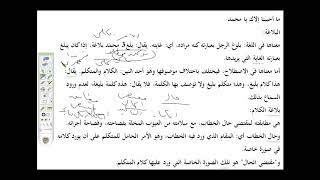 ما أحببنا إلاك يا محمد
البلاغة:
معناها في اللغة: بلوغ الرجل بعبارته كنه مراده، أي: غايته. يقال: بلغ محمد بلاغة، إذا كان يبلغ
بعبارته الغاية التي يريدها.
أما معناها في الاصطلاح، فيختلف باختلاف موصوفها وهو أحد اثنين: الكلام والمتكلم. يقال:
هذا كلام بليغ، وهذا متكلم بليغ ولا توصف بها الكلمة، فلا يقال: هذه كلمة بليغة؛ لعدم ورود
السماع بذلك.
بلاغة الكلام:
هي مطابقته لمقتضى حال الخطاب، مع سلامته من العيوب المخلة بفصاحته، وفصاحة أجزائه.
وحال الخطاب أي: المقام الذي ورد فيه الخطاب، وهو الأمر الحامل للمتكلم على أن يورد كلامه
في صورة خاصة.
و"مقتضى الحال" هو تلك الصورة الخاصة التي ورد عليها كلام المتكلم.